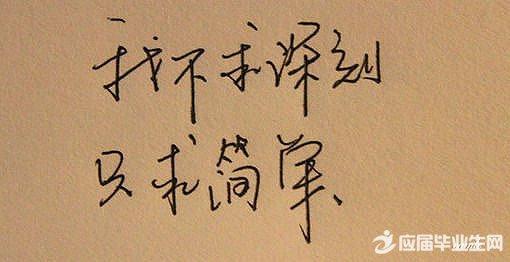 我不求深刻
只求简单、
应届毕业生网